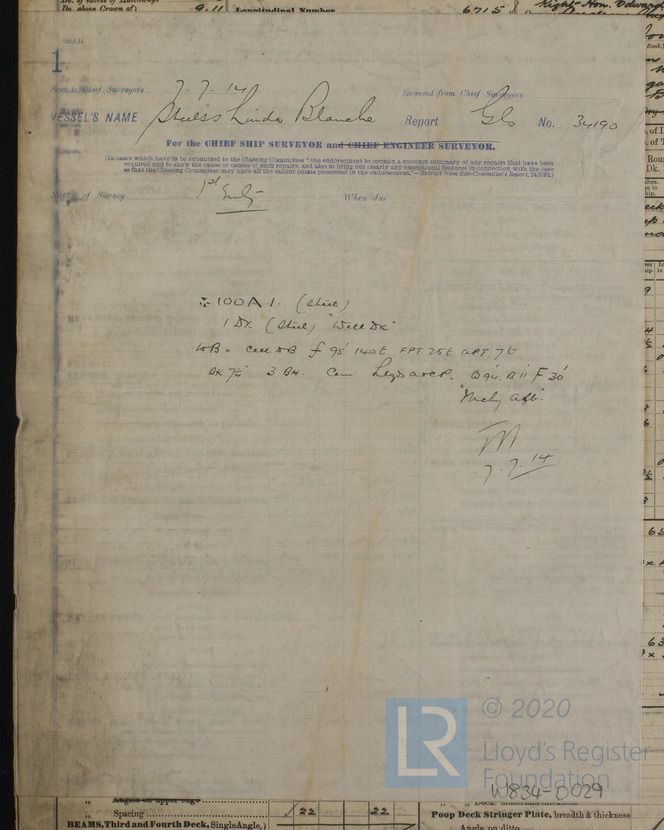 Do. above Crown of) 9.11 Longitudinal Number 6715 Right Hon. Edward
1
Sent to Chief Surveyors 7.7.14 Received from Chief Surveyors
VESSEL'S NAME Steel ss Linda Blanche Report Gls No. 34190
For the CHIEF SHIP SURVEYOR and CHIEF ENGINEER SURVEYOR.
(In cases which have to be submitted to the Classing Committee "the endorsement to contain a succinct summary of any repairs that have been
required and to show the cause or causes of such repairs, and also to bring out clearly any exceptional features in connection with the case
so that the Classing Committee may have all the salient points presented in the endorsement."—Extract from Sub-Committee's Report,
Nature of Survey 1st Entry When due
100A.1. (Steel)
1 Dk (Steel) "Well Dk"
WB = Cell DB f 95' 140t FPT 25t APT 7t
BK 7½" 3 BH. Cem. B 11' F 30'
"Mchy Aft."
7.7.14
LR © 2020
Lloyd's Register
Foundation
W834-0029
" Angles on upper edge
" Spacing 22 22
BEAMS, Third and Fourth Deck, Single Angle, Poop Deck Stringer Plate, breadth & thickness
Angle on ditto